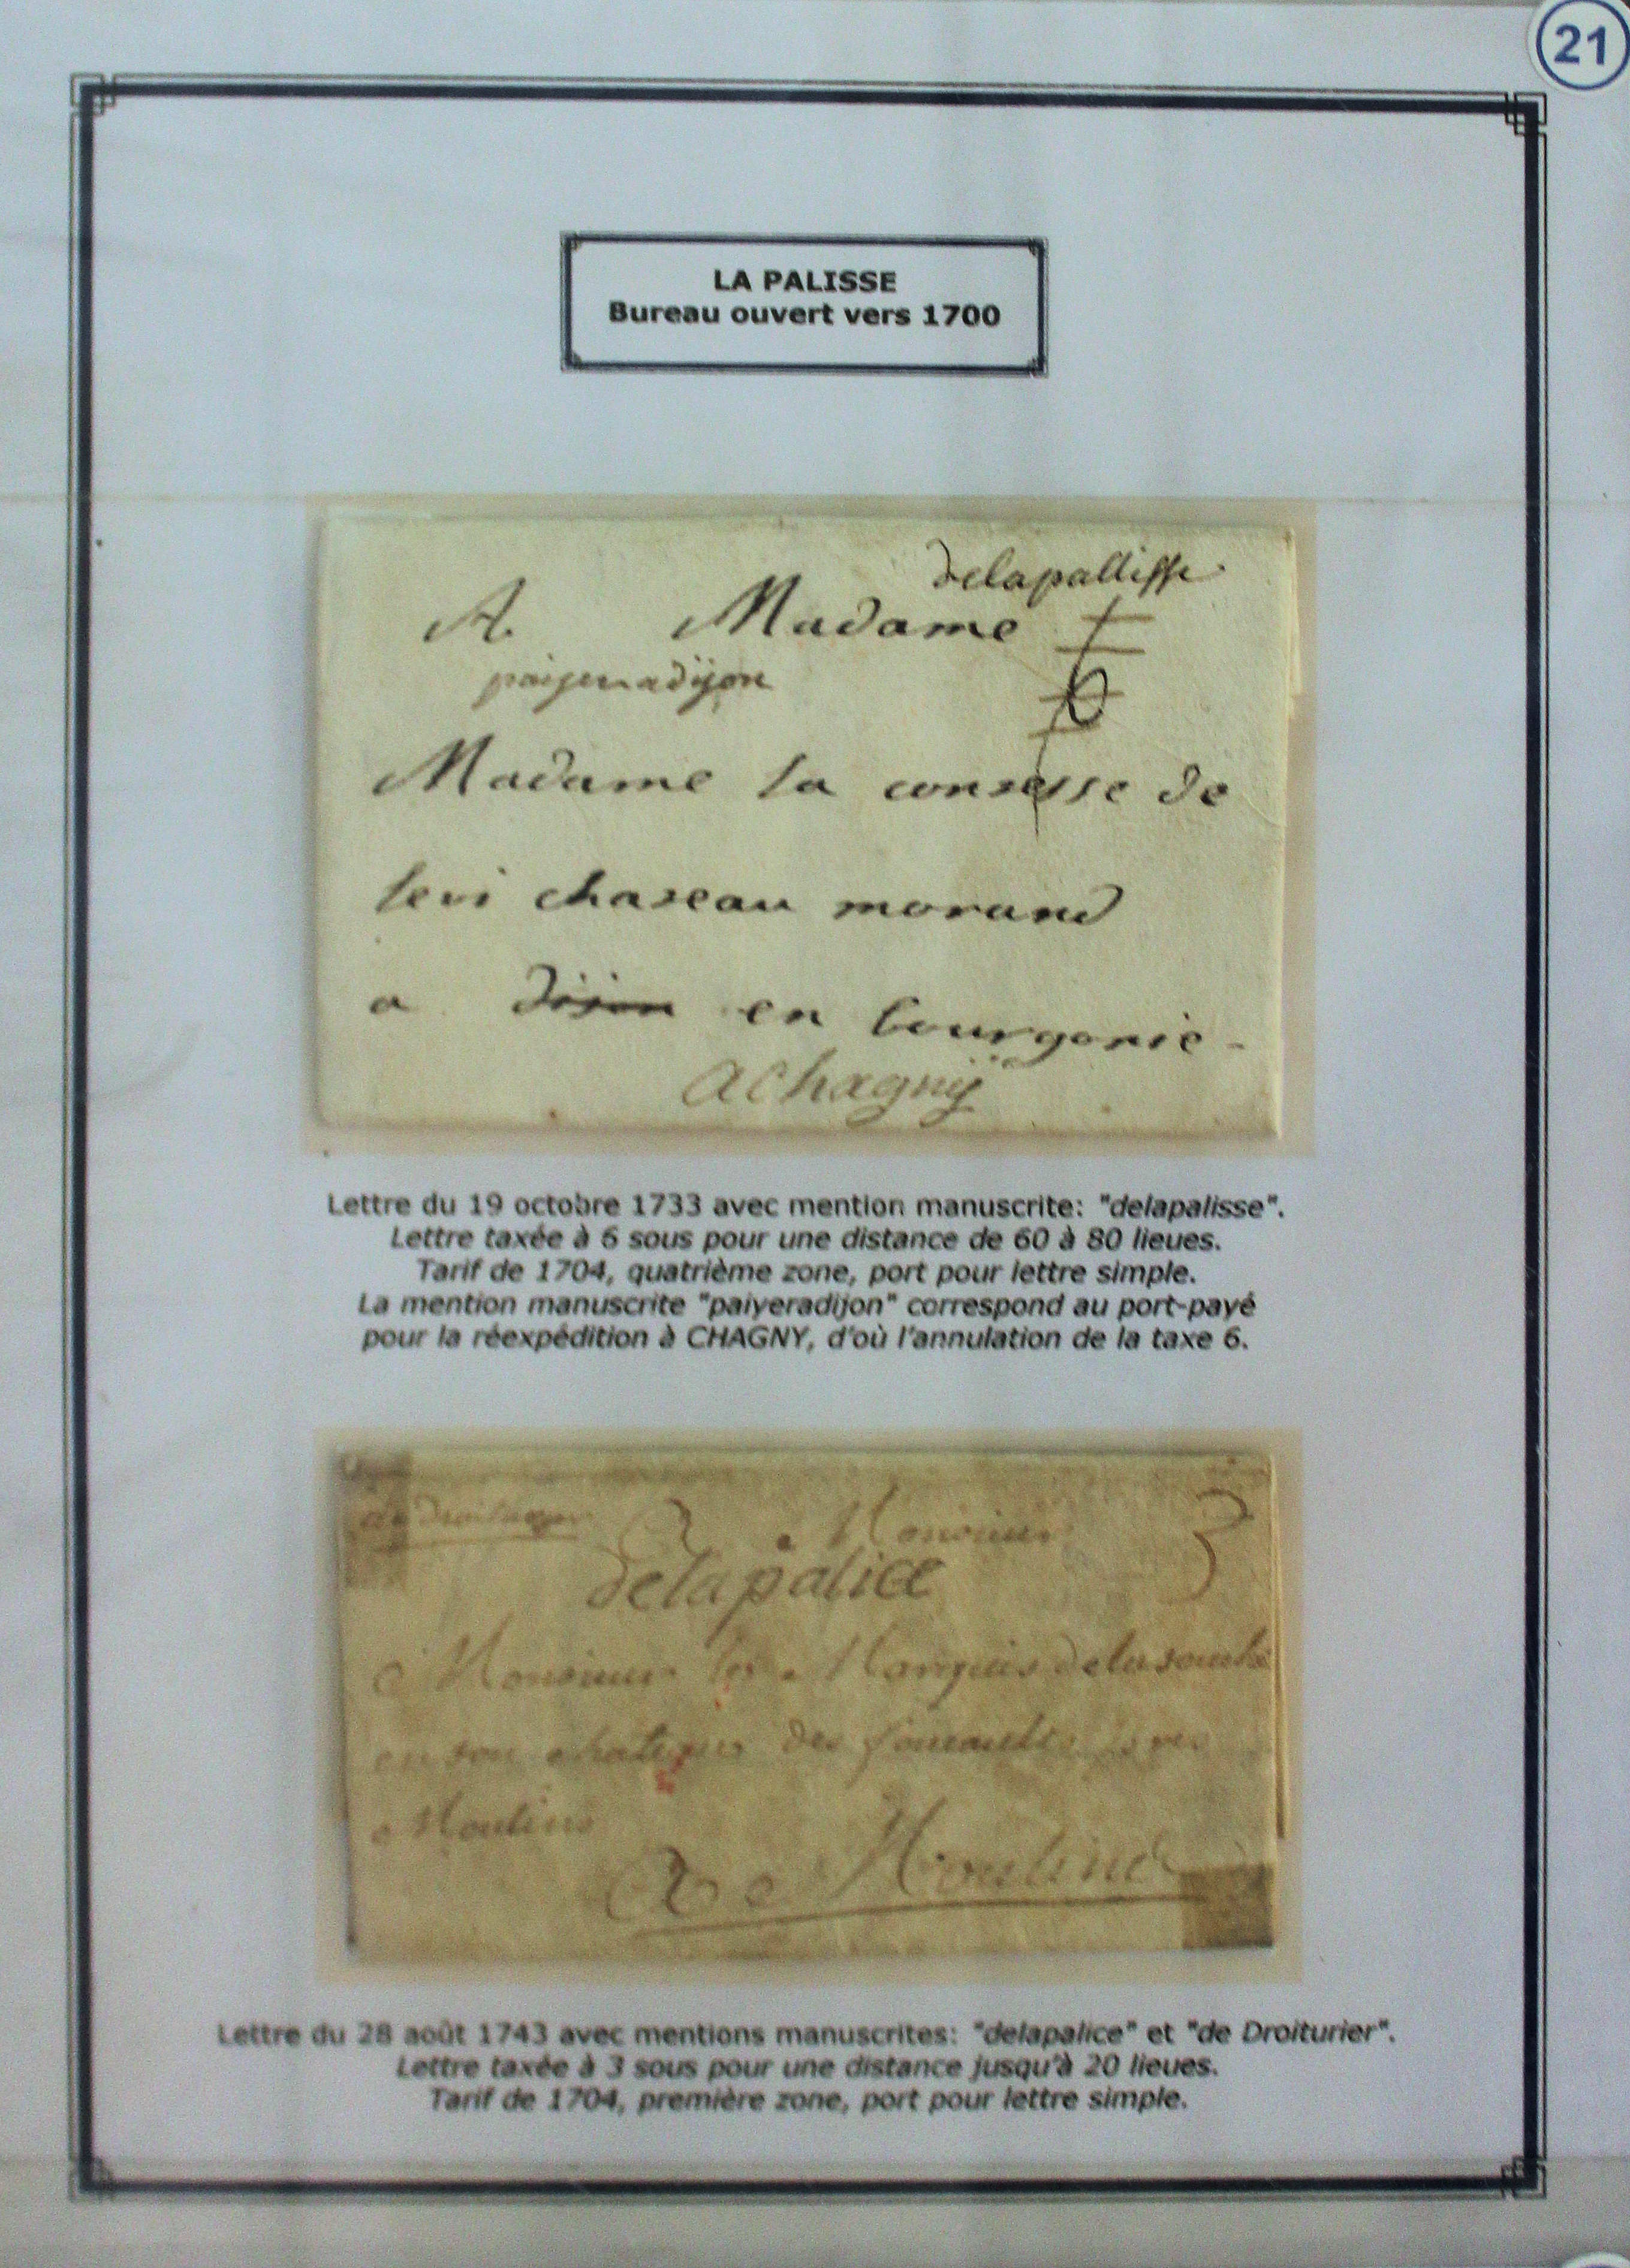 21
LA PALISSE
Bureau ouvert vers 1700
delapallisse
A. Madame
6
paiyeradijon
Madame la contesse de
levi chateau morand
a dijon en bourgonie
a chagny
Lettre du 19 octobre 1733 avec mention manuscrite: "delapalisse".
Lettre taxée à 6 sous pour une distance de 60 à 80 lieues.
Tarif de 1704, quatrième zone, port pour lettre simple.
La mention manuscrite "paiyeradijon" correspond au port-payé
pour la réexpédition à CHAGNY, d'où l'annulation de la taxe 6.
de Droiturier
a Monsieur
3
delapalice
a Monsieur le Marquis de
en son chateau des
Moulins
a Moulins
Lettre du 28 août 1743 avec mentions manuscrites: "delapalice" et "de Droiturier".
Lettre taxée à 3 sous pour une distance jusqu'à 20 lieues.
Tarif de 1704, première zone, port pour lettre simple.